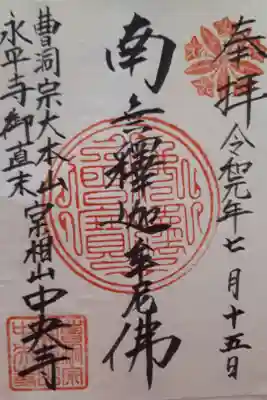 奉拝
令和元年七月十五日
南無釋迦牟尼佛
曹洞宗大本山宗相山中央寺
永平寺御直末